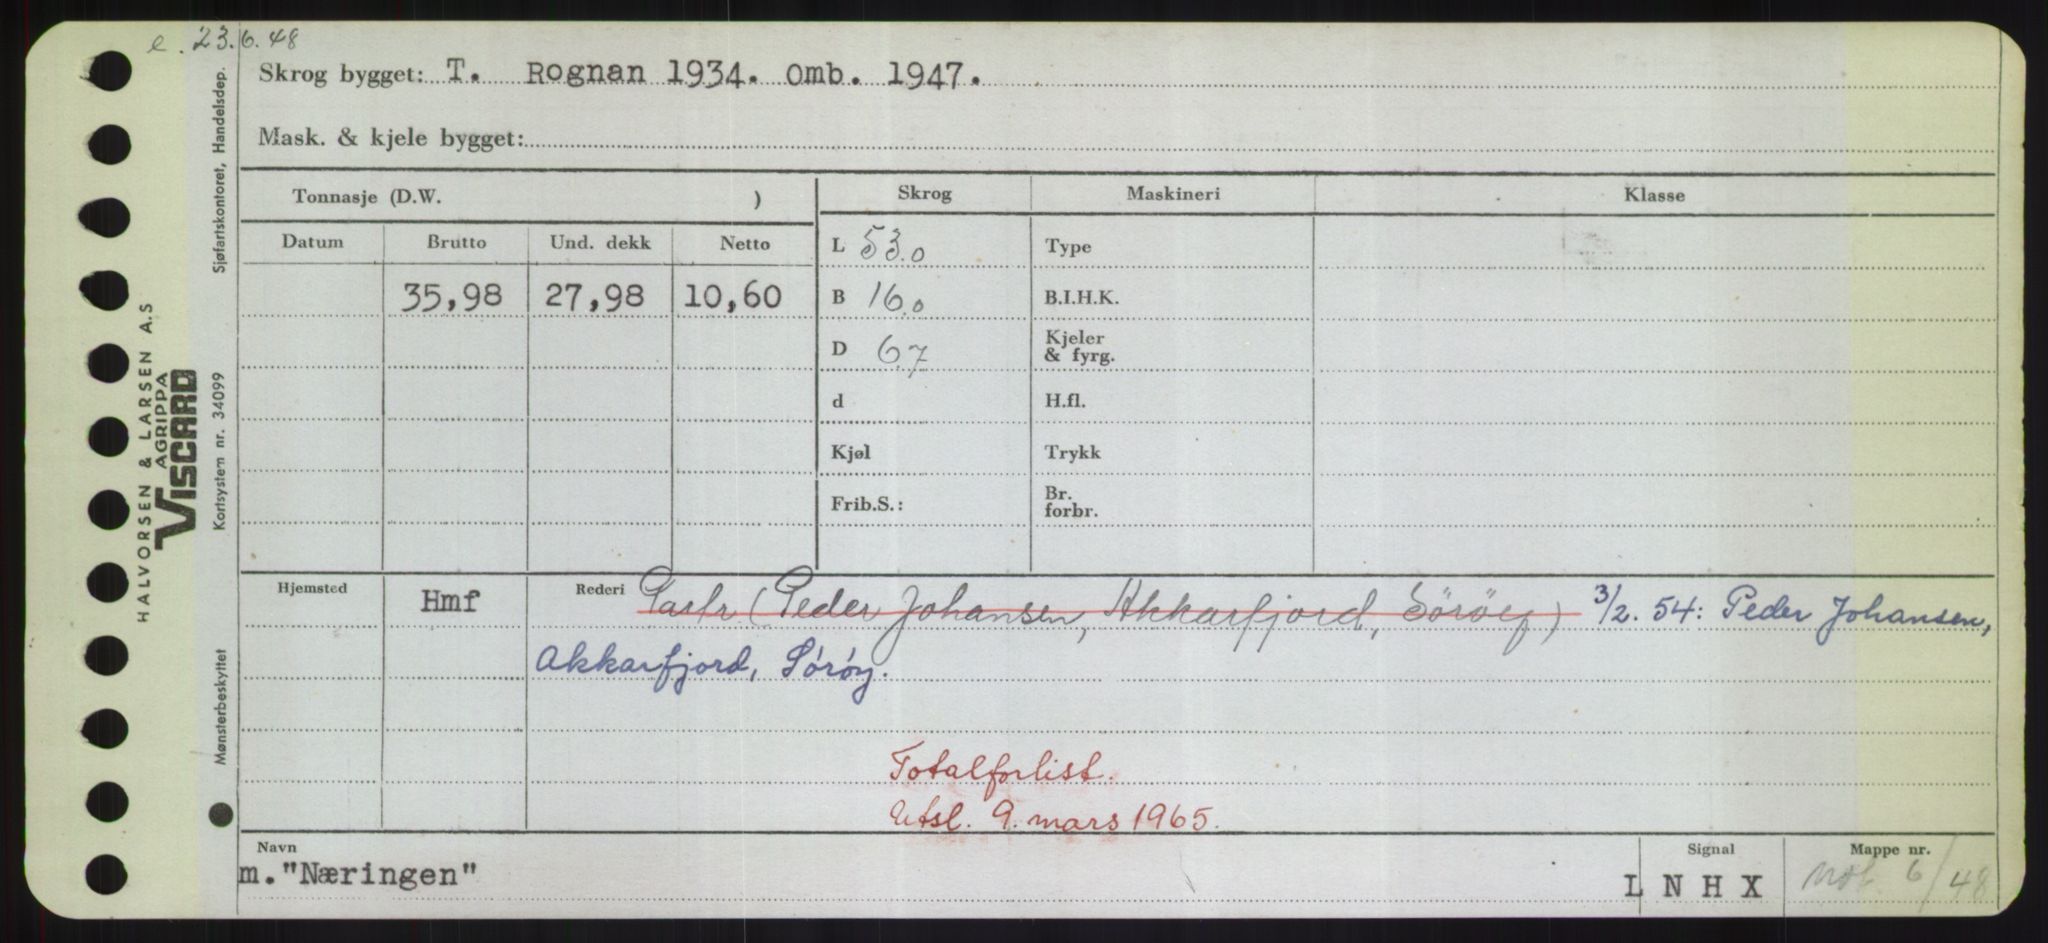 e. 23.6.48
Skrog bygget: T. Rognan 1934. Omb. 1947.
Mask. & kjele bygget:
Tonnasje (D.W. )
Skrog
Maskineri
Klasse
Datum
Brutto
Und. dekk
Netto
35,98
27,98
10,60
L 53.0
B 16.0
D 6.7
d
Kjøl
Frib.S.:
Type
B.I.H.K.
Kjeler
& fyrg.
H.fl.
Trykk
Br.
forbr.
Hjemsted
Hmf
Rederi Partr (Peder Johansen, Akkarfjord, Söröy) 3/2. 54: Peder Johansen,
Akkarfjord, Sørøy.
Totalforlist.
Utsl. 9. mars 1965.
Navn
m. "Næringen"
Signal
L N H X
Mappe nr.
6/48
HALVORSEN & LARSEN A.S
AGRIPPA
VISCARD
Sjøfartskontoret, Handelsdep.
Kortsystem nr. 34099
Mønsterbeskyttet